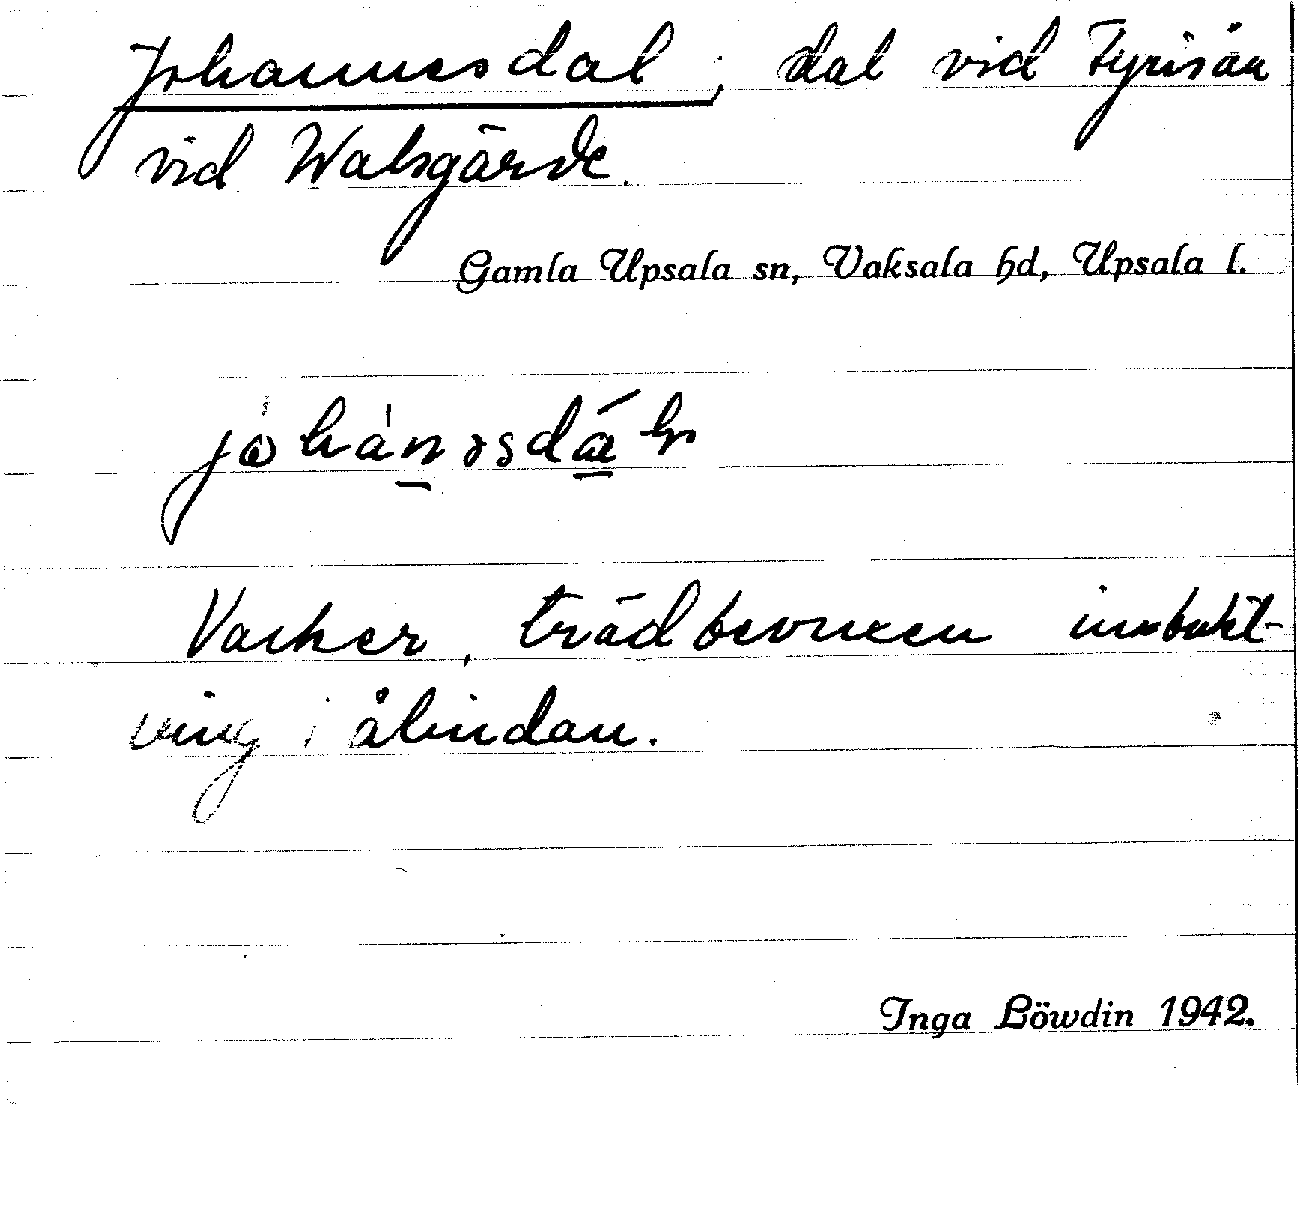 Johannesdal, dal vid Fyrisån
vid Walsgärde.
Gamla Upsala sn, Vaksala hd, Upsala l.
Vacker, trädbevuxen inbukt-
ning i ålindan.
Inga Löwdin 1942.